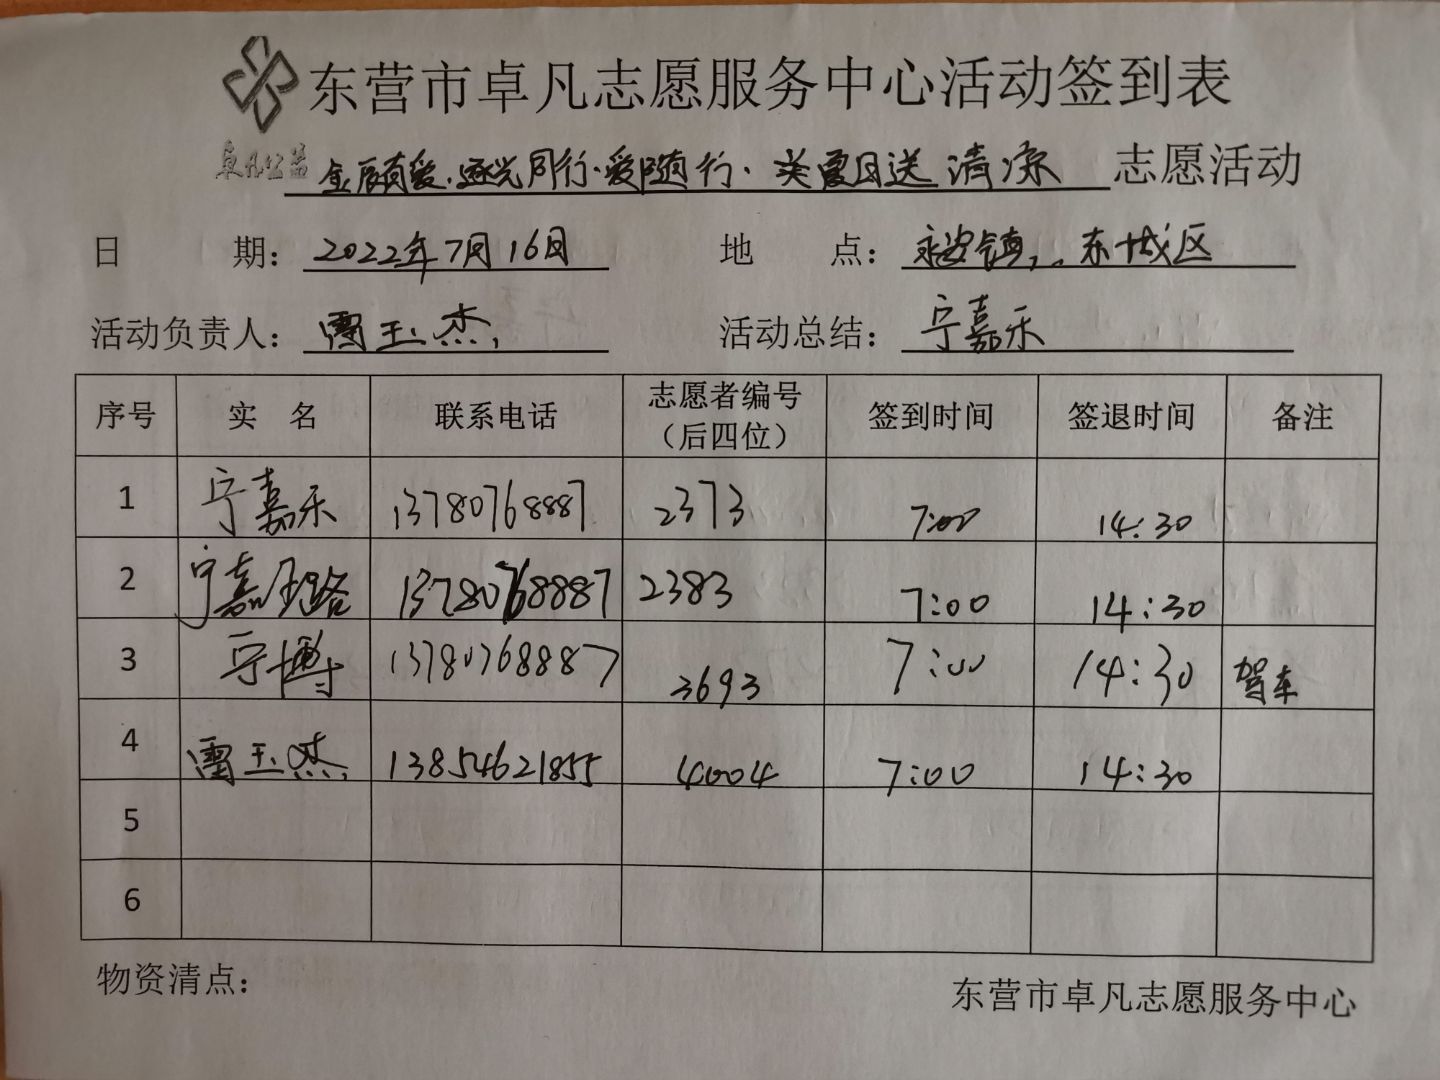 东营市卓凡志愿服务中心活动签到表
卓凡公益 金辰有爱·逐光同行·爱随行·炎夏日送清凉 志愿活动
日期：2022年7月16日 地点：永安镇，东城区
活动负责人：雷玉杰 活动总结：宁嘉乐
序号 实名 联系电话 志愿者编号（后四位） 签到时间 签退时间 备注
1 宁嘉乐 13780768887 2373 7:00 14:30
2 宁嘉璐 13780768887 2383 7:00 14:30
3 宁博 13780768887 3693 7:00 14:30 驾车
4 雷玉杰 13854621855 4004 7:00 14:30
5
6
物资清点：
东营市卓凡志愿服务中心